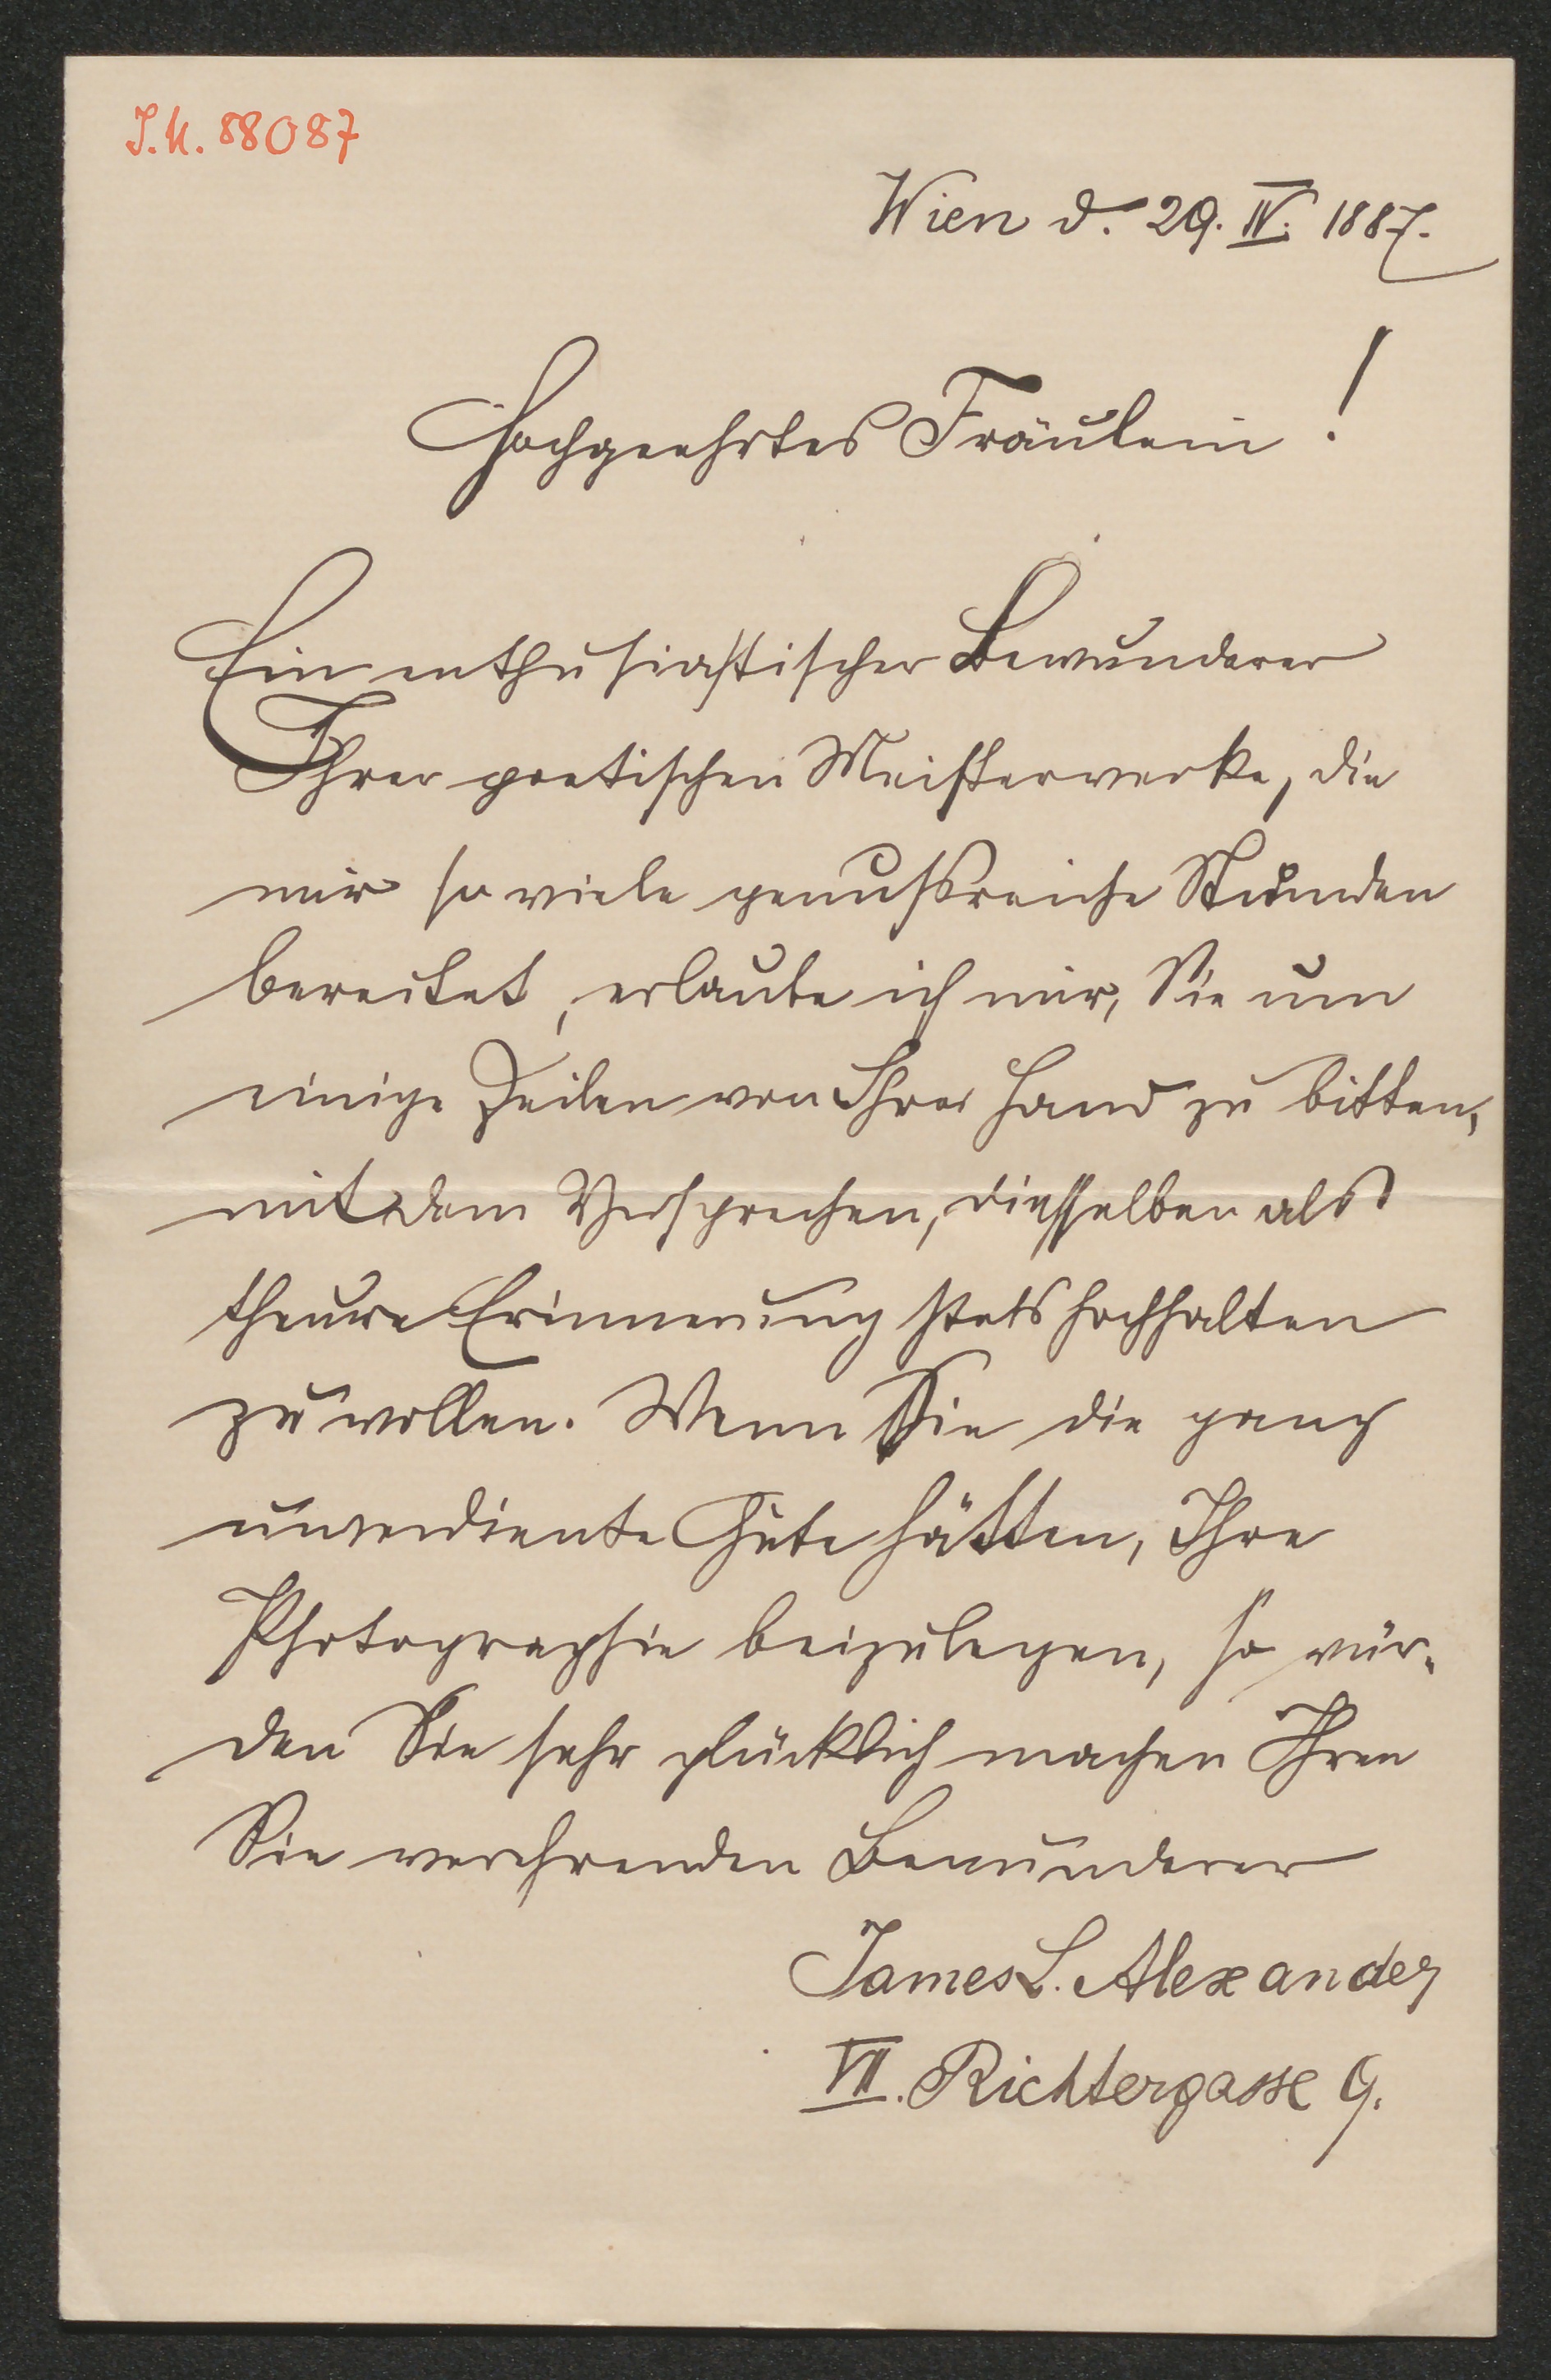 J.N. 88087
Wien d. 29. IV. 1887.
Hochgeehrtes Fräulein!
Ein enthusiastischer Bewunderer
Ihrer poetischen Meisterwerke, die
mir so viele genußreiche Stunden
bereitet, erlaube ich mir, Sie um
einige Zeilen von Ihrer Hand zu bitten,
mit dem Versprechen, diesselben als
theure Erinnerung stets hochhalten
zu wollen. Wenn Sie die ganz
unverdiente Güte hätten, Ihre
Photographie beizulegen, so wür-
den Sie sehr glücklich machen Ihren
Sie verehrenden Bewunderer
James L. Alexander
VII. Richtergasse 9.